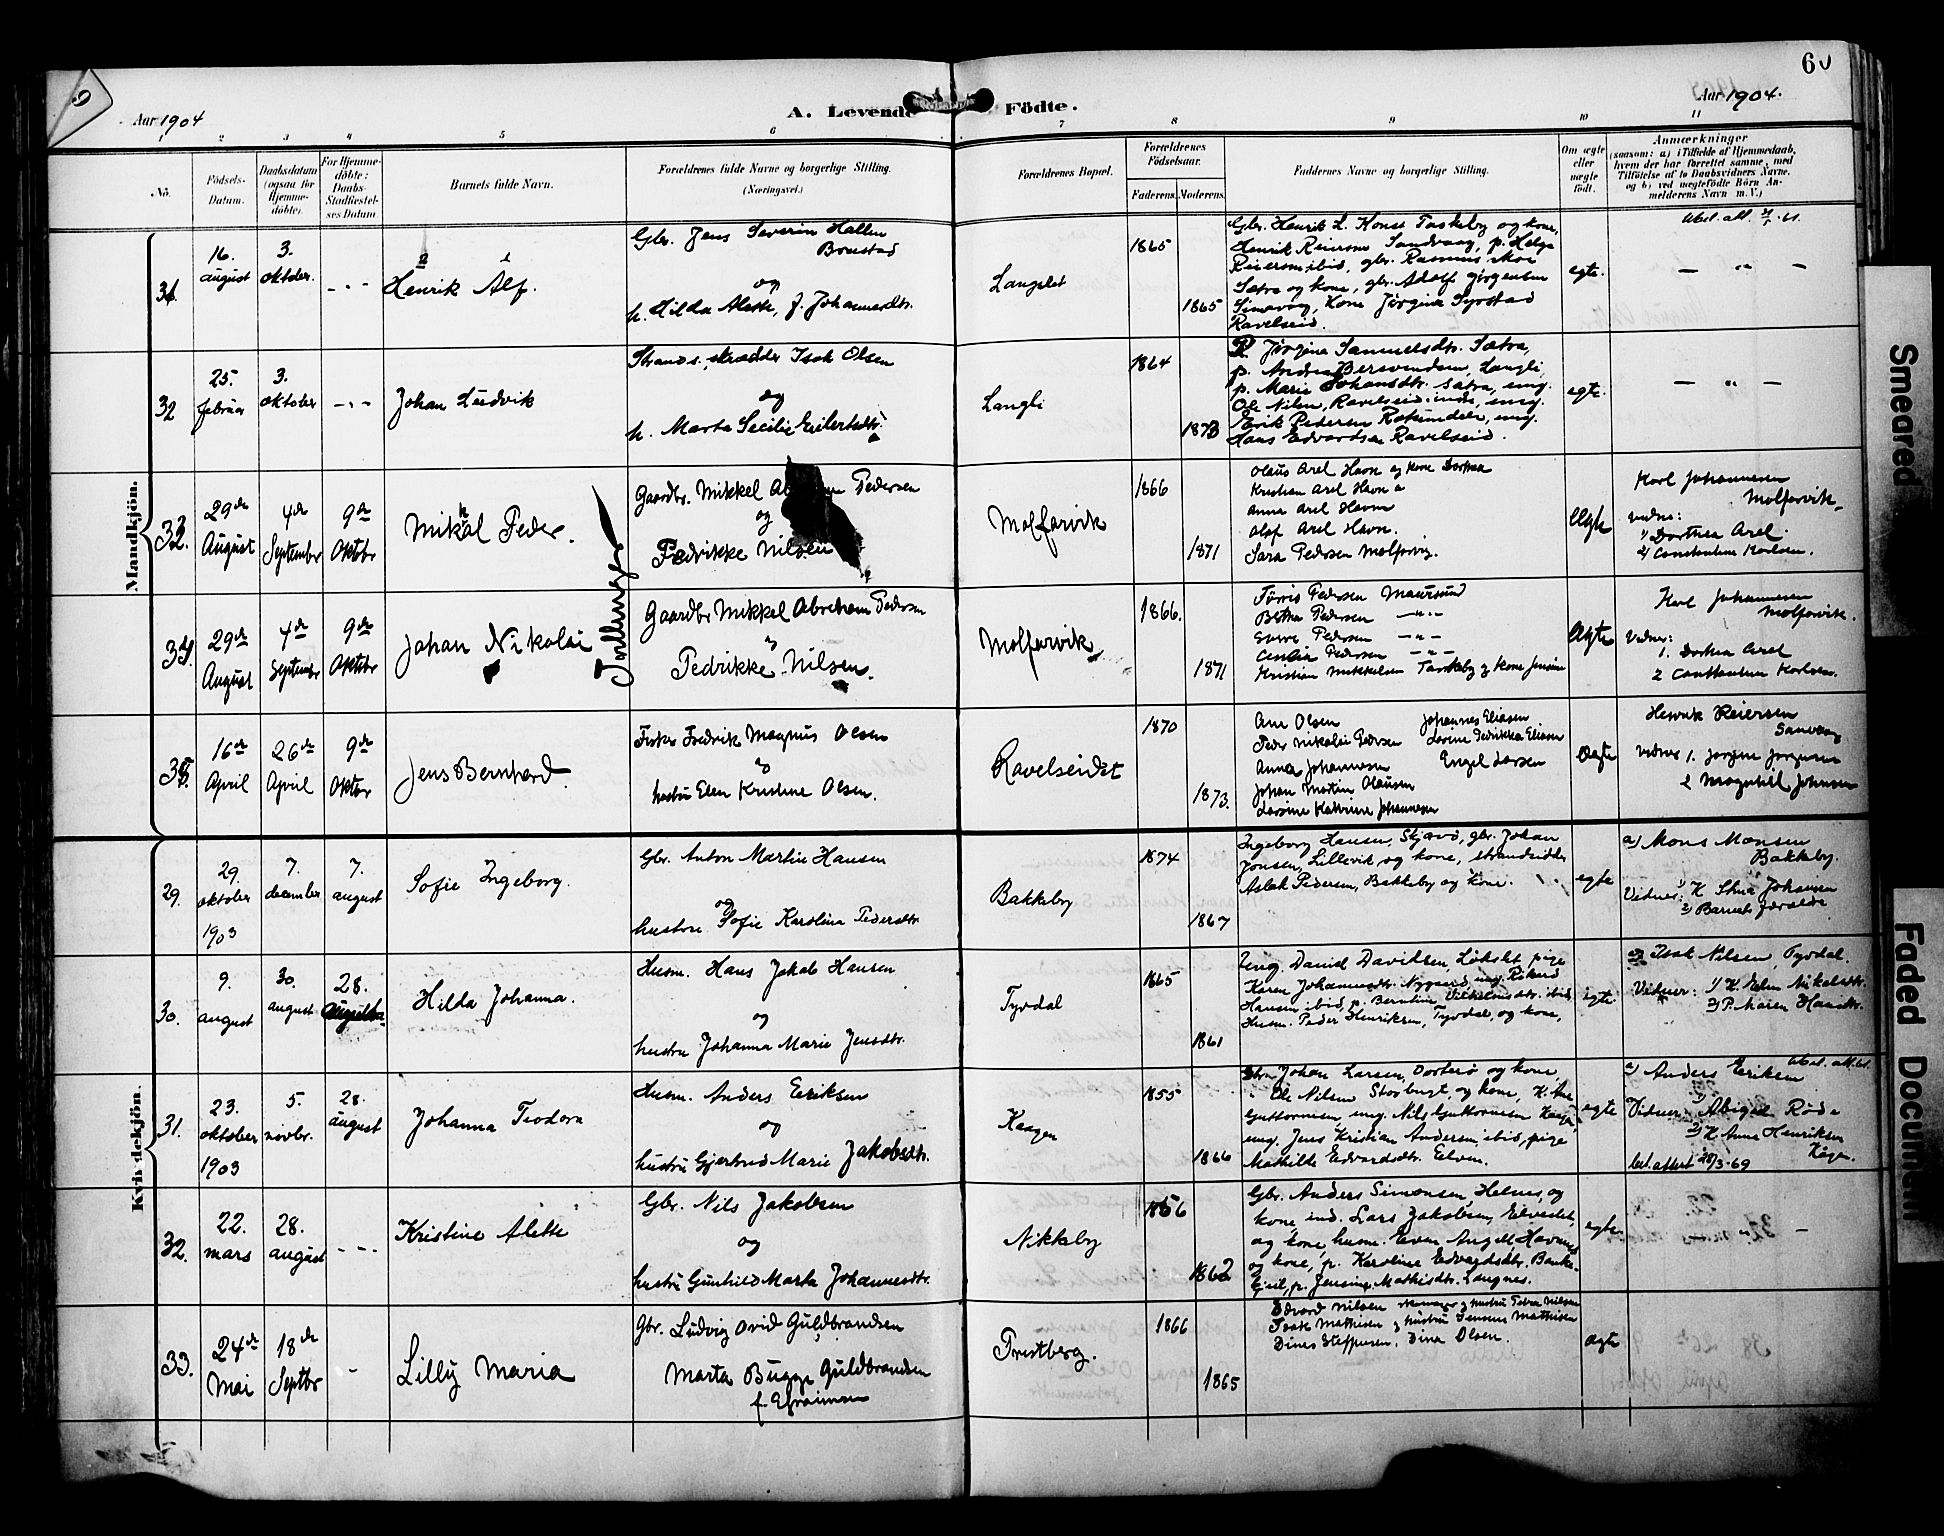 9
60
Aar 1904
A. Levende Födte.
Aar 1904.
1 2 3 4 5 6 7 8 9 10 11
No.
Födsels-
Datum.
Daabsdatum
(ogsaa for
Hjemme-
döbte).
For Hjemme-
döbte:
Daabs-
Stadfæstel-
ses Datum
Barnets fulde Navn.
Forældrenes fulde Navne og borgerlige Stilling.
(Næringsvei.)
Forældrenes Bopæl.
Forældrenes
Födselsaar.
Faderens. Moderens.
Faddernes Navne og borgerlige Stilling.
Om ægte
eller
uægte
født.
Anmærkninger
(saasom: a) i Tilfælde af Hjemmedaab,
hvem der har forrettet samme, med
Tilföielse af to Daabsvidners Navne,
og b) ved uægtefödte Börn An-
melderens Navn m. V.)
Mandkjön.
31.
16.
august
3.
oktober.
- - -
Henrik Alf.
Gbr. Jens Severin Hallen
Bonstad
og
h. Hilda Alette, f. Johannesdtr.
Langslet
1865
1865
Gbr. Henrik L. Kone Taskeby og kone,
Henrik Reiersen Sandvaag, p. Helga
Reiersen ibid, gbr. Rasmus Moe
Sætra og kone, gbr. Adolf Jørgensen
Simavag, Kone Jørgine Syrstad
Ravelseid.
egte.
— " —
32
25.
februar
3.
oktober
- - -
Johan Ludvik
Strands. skrædder Isak Olsen
og
h. Marta Secilie Eilertsdtr.
Langli
1864
1873
P. Jørgine Samuelsdtr. Sætra,
p. Andrea Bersvendsen, Langli,
p. Marie Johansdtr. Sætra, ung.
Ole Nilsen, Ravelseid inde, ung.
Erik Pedersen Rotsundelv, ung.
Hans Edvardsen Ravelseid.
egte.
— " —
33.
29de
August
4de
September
9de
Oktbr
Mikal Peder.
Tvillinger
Gaardbr. Mikkel Pedersen
og
Pedrikke Nilsen
Molfarvik
1866
1871
Olaus Arel Havn og kone Dorthea
Kristian Arel Havn
Anna Arel Havn
Olaf Arel Havn.
Sara Pedersen Molforvig.
Ægte
Karl Johannesen
Molforvik.
Vidner:
1) Dorthea Arel.
2) Constantine Karlsen.
34.
29de
August
4de
Septembr
9de
Oktbr
Johan Nikolai
Gaardbr Mikkel Abraham Pedersen
og
Pedrikke Nilsen.
Molfarvik
1866.
1871
Pedersen Maursund
Pedersen — " —
Pedersen — " —
Pedersen — " —
Kristian Mikkelsen Taskeby og kone Jensine
Ægte
Karl Johannesen
Molforvik.
Vidner:
1. Dorthea Arel
2 Constantine Karlsen.
35.
16de
April
26de
April
9de
Oktbr
Jens Bernhard.
Fisker Fredrik Magnus Olsen
og
hustru Elen Kristine Olsen.
Ravelseidet
1870
1873.
Ane Olsen Johannes Eliasen
Peder Nikolai Pedersen Lovine Pedrikka Eliasen
Anna Johannesen Engel Larsen
Johan Martin Olausen
Lovine Kathrine Johannesen
Ægte
Henrik Reiersen
Sanvaag
Vidner 1. Jørgen Jørgensen
2 Magnhild Johnsen
Kvindekjön.
29.
29.
oktober
1903
7.
december
7.
august
Sofie Ingeborg.
Gbr. Anton Martin Hansen
og
hustru Sofie Karolina Pedersdtr.
Bakkeby
1874
1867
Ingeborg Hansen, Skjavø, gbr. Johan
Jonsen, Lillevik og kone, strandsidder
Aslak Pedersen, Bakkeby og kone.
egte
a) Mons Monsen
Bakkeby.
Vidner: 1) K Stina Johansen
2) Barnets forældre
30.
9.
august
30.
august
28.
Hilda Johanna.
Husm. Hans Jakob Hansen
og
hustru Johanna Marie Jensdtr.
Tyvdal
1865
1861
Ung. Daniel Davidsen, Løkslet pige
Karen Johannesdtr. Nygaard, ung. Rikard
Hansen ibid, p. Berntine Vilhelmsdtr. ibid,
Husm. Peder Henriksen, Tyvdal, og kone,
egte
a) Isak Nilsen, Tyvdal.
Vidner: 1) K Elen Nikolsdtr.
2) P. Maren Hansdtr.
31.
23.
oktober
1903
5.
novbr.
28.
august
Johanna Teodora
Husm. Anders Eriksen
og
hustru Gjertrud Marie Jakobsdtr.
Kaagen
1855
1866
Johan Larsen, Dorterø og kone,
Ole Nilsen Storbugt, og kone, K. Ane
Guttormsen, ung. Nils Guttormsen Kaagen,
ung. Jens Kristian Andersen, ibid, pige
Mathilte Edvardsdtr. Elven.
egte
a) Anders Eriksen
Vidner: 1) Abigel Røde
2) K Anne Henriksen
Kågen.
bet. attest 28/3-69
32.
22.
mars
28.
august
- - -
Kristine Alette
Gbr. Nils Jakobsen
og
hustru Gunhild Marta Johannesdtr.
Nikkeby
1856
1862
Gbr. Anders Simonsen, Helnes, og
kone ind. Lars Jakobsen, Elveslet,
og kone, husm. Even Angell Havnnes
og kone, p. Karoline Edvardsdtr. Banke-
Eid, p. Jensine Mathisdtr. Langnes.
egte
" —
33.
24de
Mai
18de
Septbr
-
Lilly Maria
Gbr. Ludvig Ovid Guldbrandsen
Marta Bugge Guldbrandsen
f. Efraimsen
Prestberg.
1866
1865
Edvard Nilsen og hustru Nilsen
Isak Mathisen og hustru Jensine Mathisen
Dines Steffensen, Dina Olsen.
ægte
Smeared
Faded Document